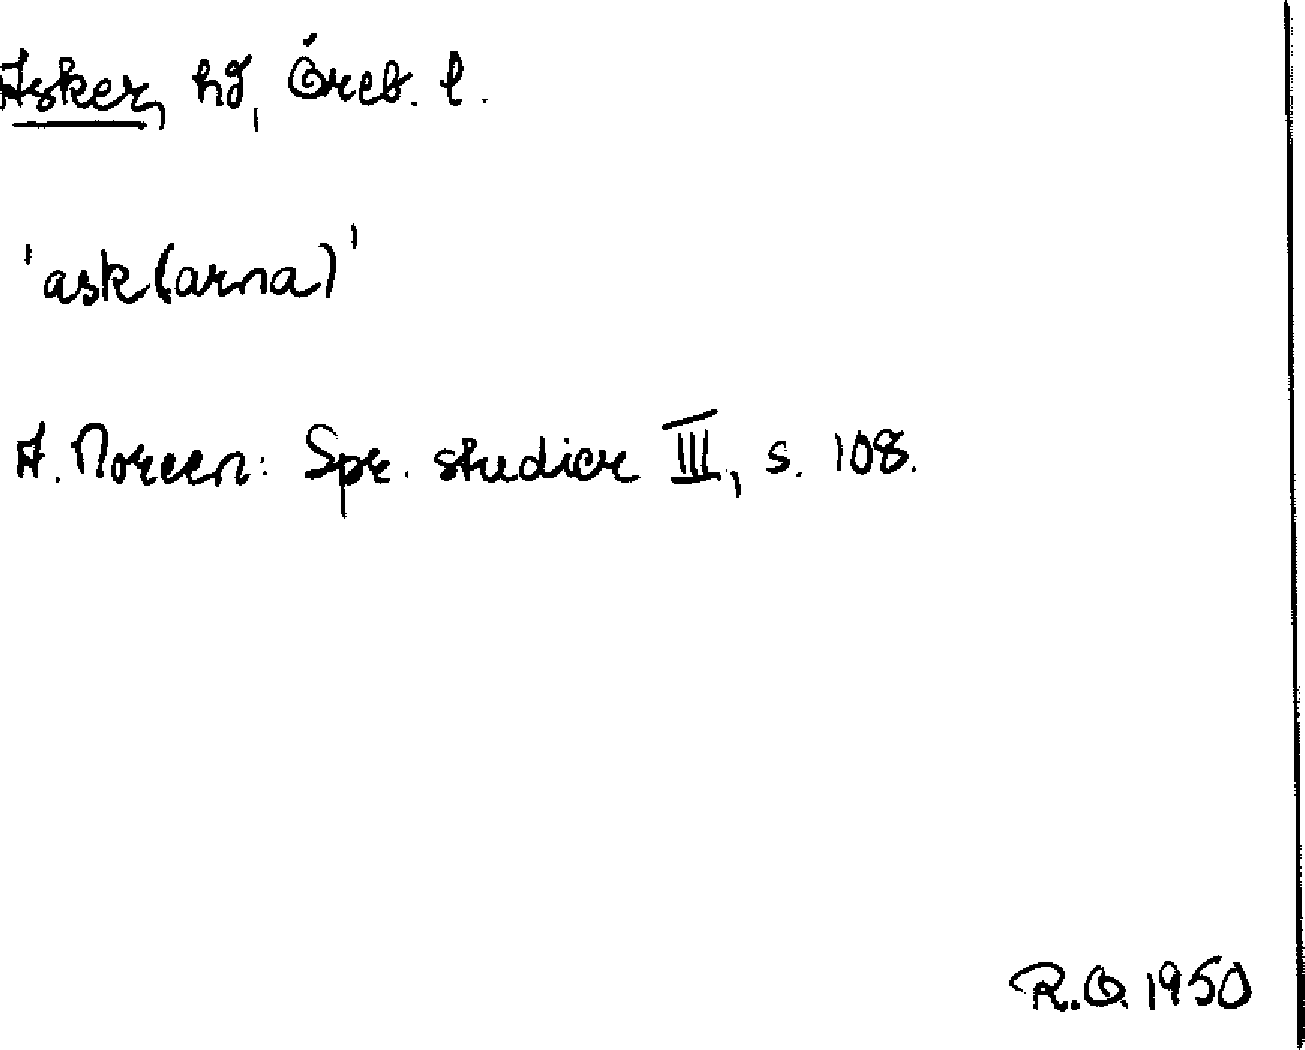 Asker, hd, Öreb. l.
'ask(arna)'
A. Noreen: Spr. studier III, s. 108.
R.O. 1950